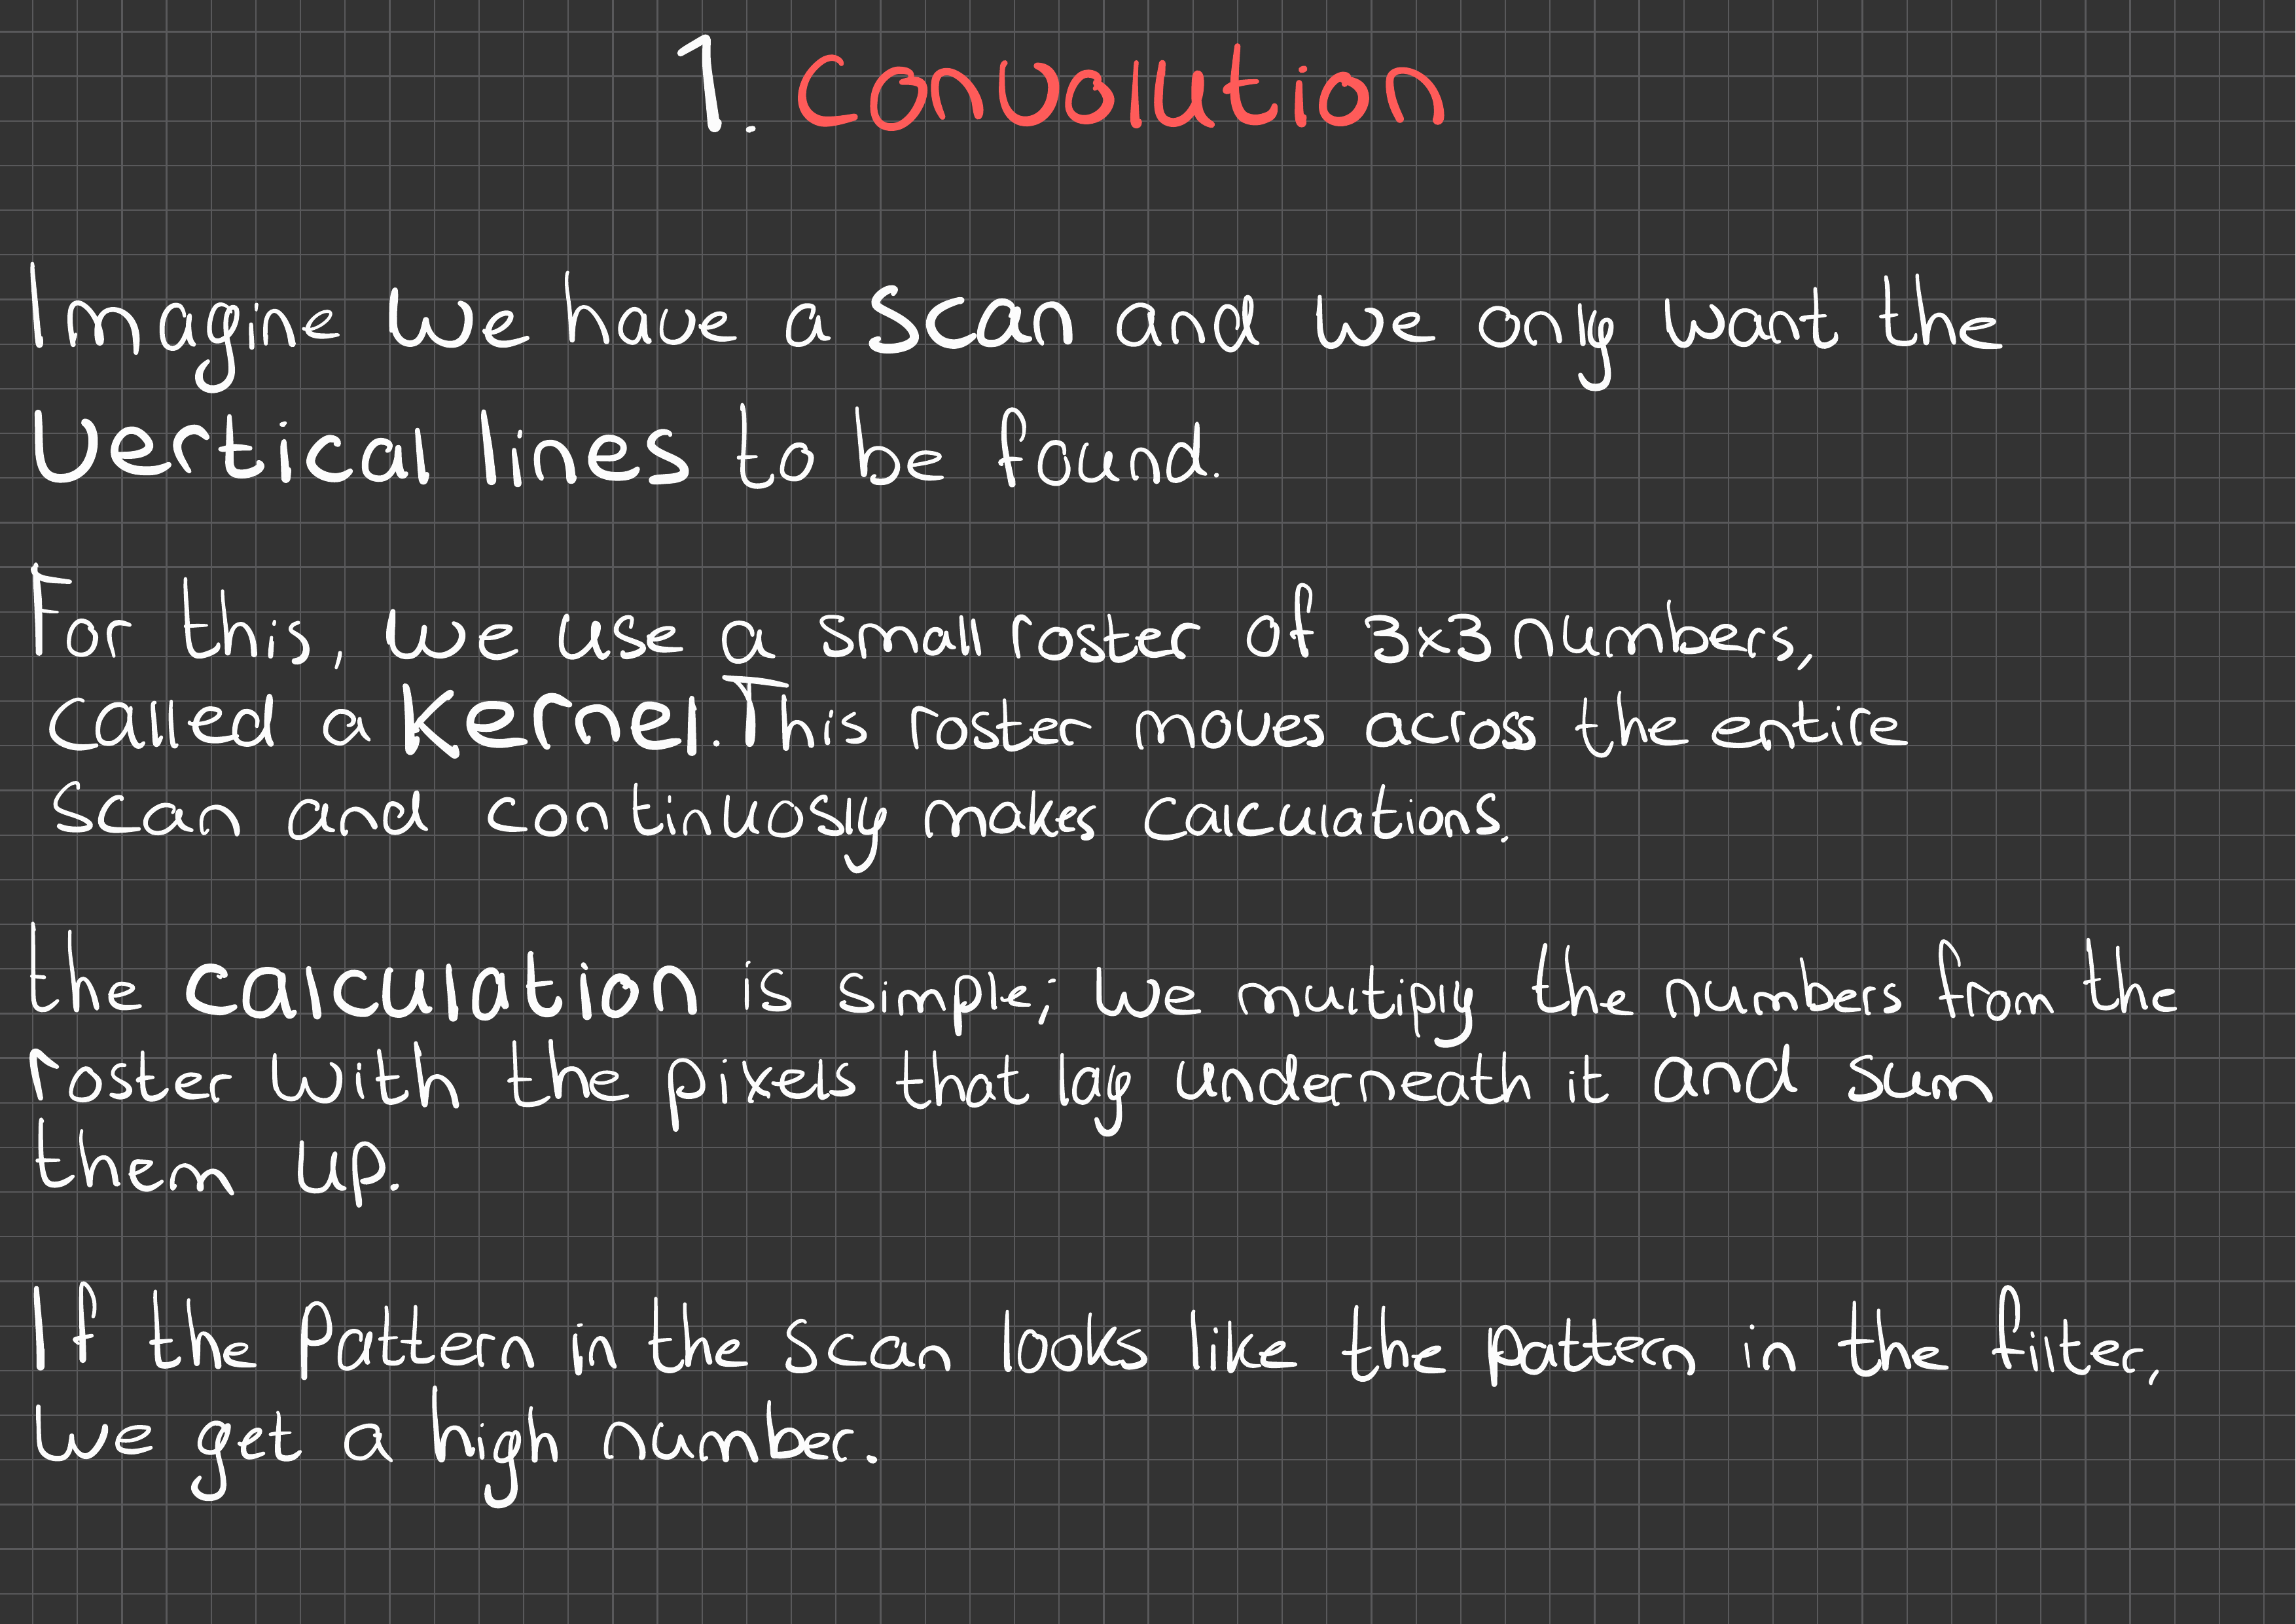 1. Convolution
Imagine we have a scan and we only want the
vertical lines to be found.
For this, we use a small roster of 3x3 numbers,
called a kernel. This roster moves across the entire
scan and continuosly makes calculations.
the calculation is simple; we multiply the numbers from the
roster with the pixels that lay underneath it and sum
them up.
If the pattern in the scan looks like the pattern in the filter,
we get a high number.